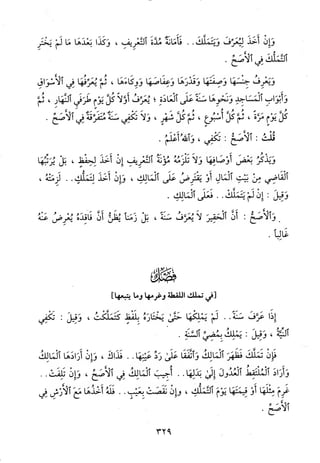 وَإِنْ أَخَذَ لِيُعَرِّفَ وَيَتَمَلَّكَ.. فَأَمَانَةٌ مُدَّةَ التَّعْرِيفِ ، وَكَذَا بَعْدَهَا مَا لَمْ يَخْتَرِ
التَّمَلُّكَ فِي الأَصَحِّ .
وَيَعْرِفُ جِنْسَهَا وَصِفَتَهَا وَقَدْرَهَا وَعِفَاصَهَا وَوِكَاءَهَا ، ثُمَّ يُعَرِّفُهَا فِي الأَسْوَاقِ
وَأَبْوَابِ الْمَسَاجِدِ وَنَحْوِهَا سَنَةً عَلَى الْعَادَةِ ؛ يُعَرِّفُ أَوَّلاً كُلَّ يَوْمٍ طَرَفَيِ النَّهَارِ ، ثُمَّ
كُلَّ يَوْمٍ مَرَّةً ، ثُمَّ كُلَّ أُسْبُوعٍ ، ثُمَّ كُلَّ شَهْرٍ ، وَلاَ تَكْفِي سَنَةٌ مُتَفَرِّقَةٌ فِي الأَصَحِّ .
قُلْتُ : الأَصَحُّ : تَكْفِي ، وَاللهُ أَعْلَمُ .
وَيَذْكُرُ بَعْضَ أَوْصَافِهَا وَلاَ تَلْزَمُهُ مُؤْنَةُ التَّعْرِيفِ إِنْ أَخَذَ لِحِفْظٍ ، بَلْ يُرَتِّبُهَا
الْقَاضِي مِنْ بَيْتِ الْمَالِ أَوْ يَقْتَرِضُ عَلَى الْمَالِكِ ، وَإِنْ أَخَذَ لِتَمَلُّكٍ.. لَزِمَتْهُ ،
وَقِيلَ : إِنْ لَمْ يَتَمَلَّكْ.. فَعَلَى الْمَالِكِ .
وَالأَصَحُّ : أَنَّ الْحَقِيرَ لاَ يُعَرَّفُ سَنَةً ، بَلْ زَمَناً يُظَنُّ أَنَّ فَاقِدَهُ يُعْرِضُ عَنْهُ
غَالِباً .
فَصْلٌ
[في تملك اللقطة وغرمها وما يتبعها]
إِذَا عَرَّفَ سَنَةً.. لَمْ يَمْلِكْهَا حَتَّىٰ يَخْتَارَهُ بِلَفْظٍ كَتَمَلَّكْتُ ، وَقِيلَ : تَكْفِي
النِّيَّةُ ، وَقِيلَ : يَمْلِكُ بِمُضِيِّ السَّنَةِ .
فَإِنْ تَمَلَّكَ فَظَهَرَ الْمَالِكُ وَاتَّفَقَا عَلَىٰ رَدِّ عَيْنِهَا.. فَذَاكَ ، وَإِنْ أَرَادَهَا الْمَالِكُ
وَأَرَادَ الْمُلْتَقِطُ الْعُدُولَ إِلَىٰ بَدَلِهَا.. أُجِيبَ الْمَالِكُ فِي الأَصَحِّ ، وَإِنْ تَلِفَتْ..
غَرِمَ مِثْلَهَا أَوْ قِيمَتَهَا يَوْمَ التَّمَلُّكِ ، وَإِنْ نَقَصَتْ بِعَيْبٍ.. فَلَهُ أَخْذُهَا مَعَ الأَرْشِ فِي
الأَصَحِّ .
٣٢٩